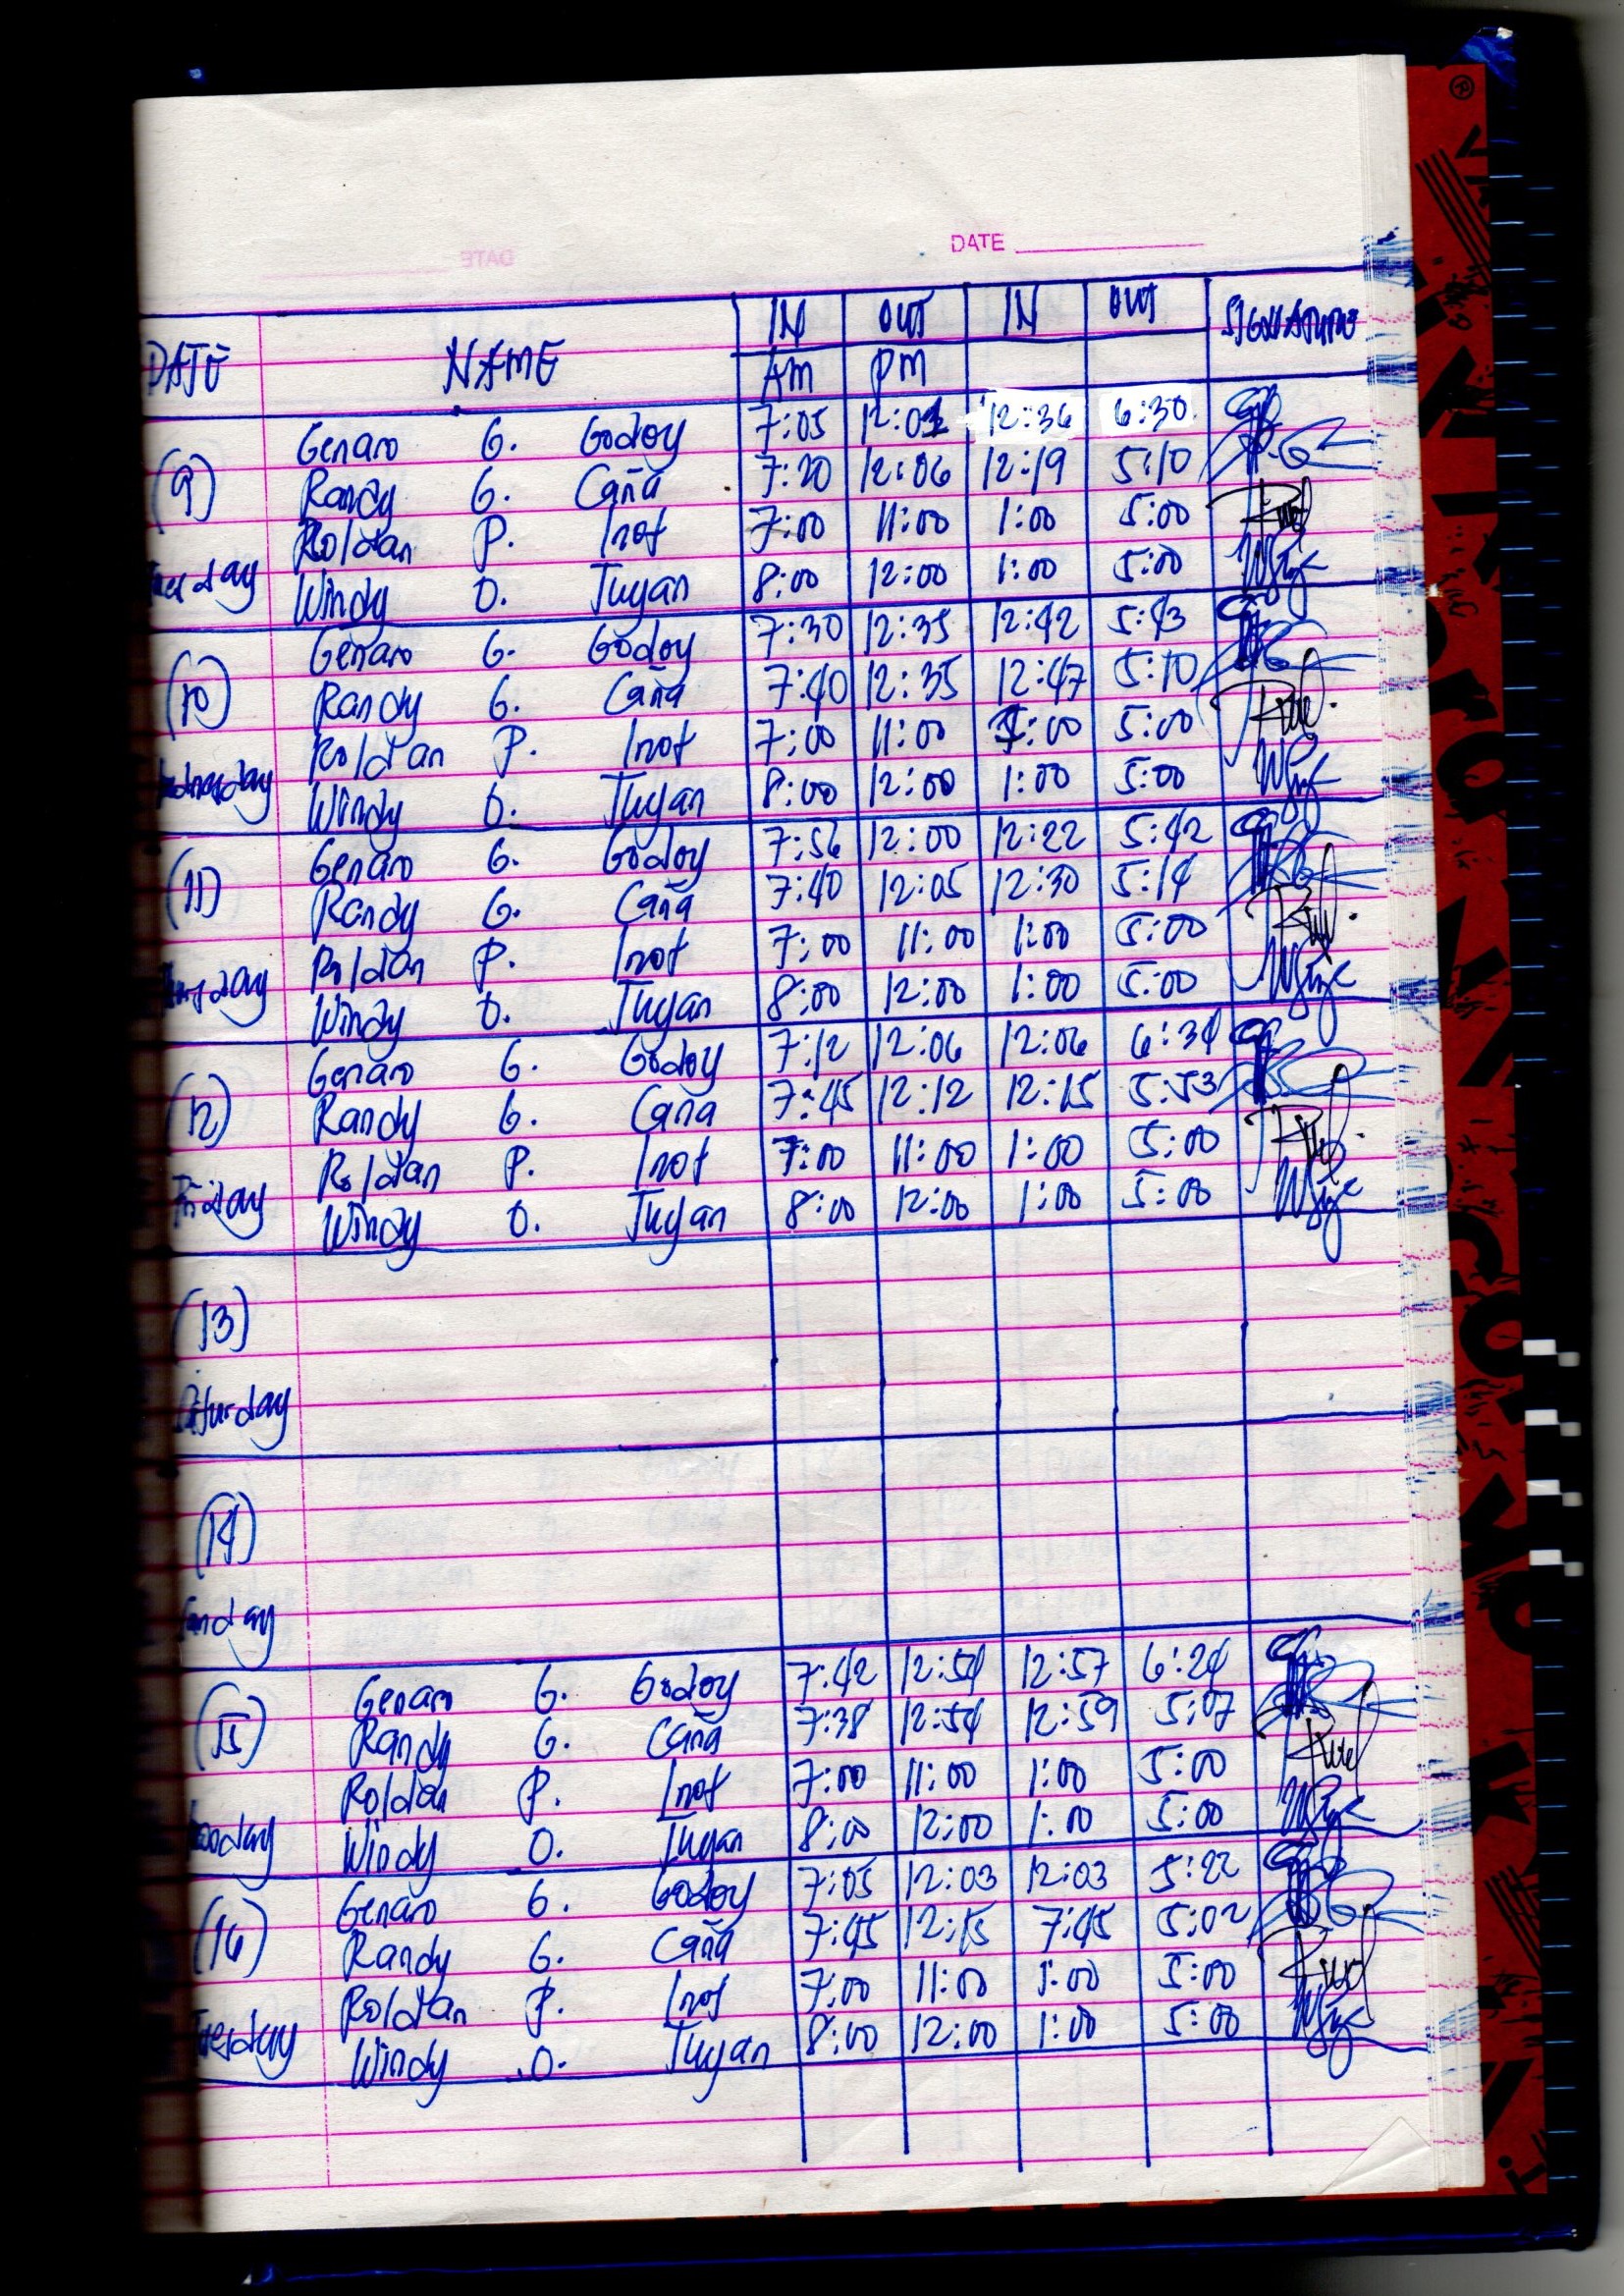 DATE
DATE NAME IN OUT IN OUT SIGNATURE
AM PM
(9) Genaro G. Godoy 7:05 12:01 12:36 6:30
Randy G. Caña 7:20 12:06 12:19 5:10
Roldan P. Inot 7:00 11:00 1:00 5:00
Windy O. Tuyan 8:00 12:00 1:00 5:00
(10) Genaro G. Godoy 7:30 12:35 12:42 5:43
Randy G. Caña 7:40 12:35 12:47 5:10
Roldan P. Inot 7:00 11:00 1:00 5:00
Wednesday Windy O. Tuyan 8:00 12:00 1:00 5:00
(11) Genaro G. Godoy 7:56 12:00 12:22 5:42
Randy G. Caña 7:40 12:05 12:30 5:14
Roldan P. Inot 7:00 11:00 1:00 5:00
Windy O. Tuyan 8:00 12:00 1:00 5:00
(12) Genaro G. Godoy 7:12 12:06 12:06 6:34
Randy G. Caña 7:45 12:12 12:15 5:53
Roldan P. Inot 7:00 11:00 1:00 5:00
Friday Windy O. Tuyan 8:00 12:00 1:00 5:00
(13)
Saturday
(14)
Sunday
(15) Genaro G. Godoy 7:42 12:54 12:57 6:24
Randy G. Caña 7:38 12:54 12:59 5:07
Roldan P. Inot 7:00 11:00 1:00 5:00
Monday Windy O. Tuyan 8:00 12:00 1:00 5:00
(16) Genaro G. Godoy 7:05 12:03 12:03 5:22
Randy G. Caña 7:45 12:15 7:45 5:02
Roldan P. Inot 7:00 11:00 1:00 5:00
Tuesday Windy O. Tuyan 8:00 12:00 1:00 5:00